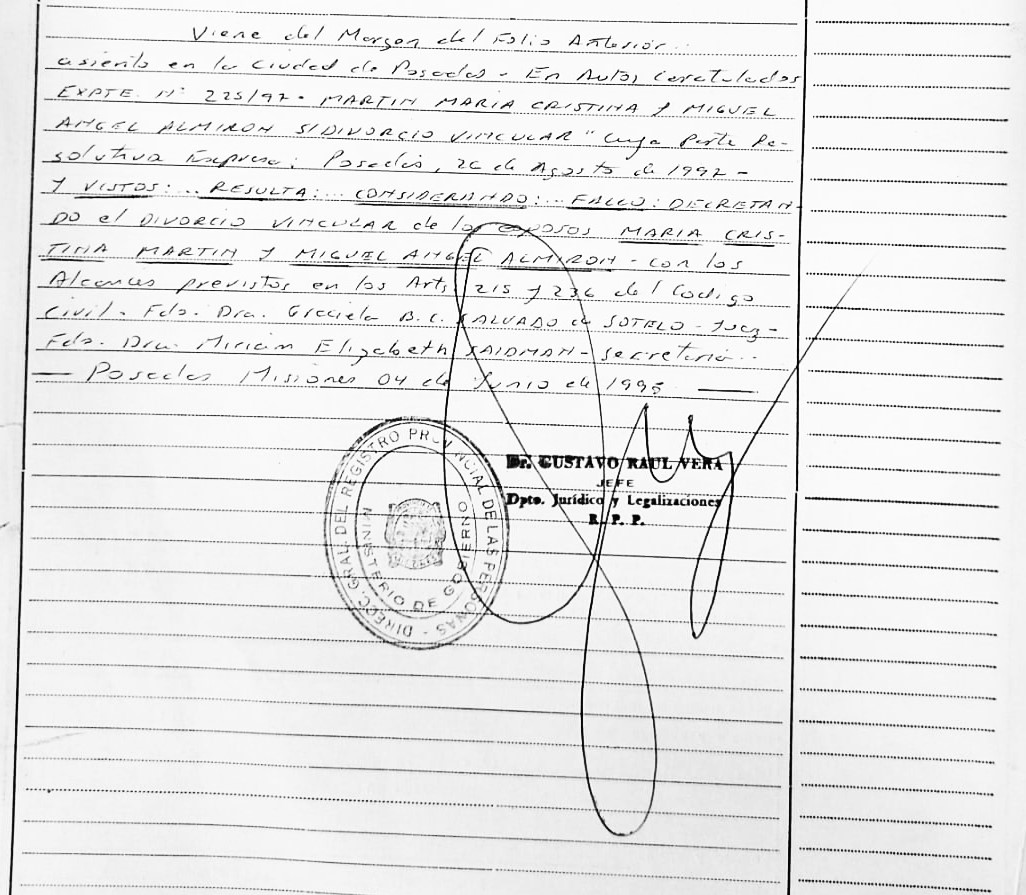 Viene del Margen del Folio Anterior.
asiento en la Ciudad de Posadas - En Autos Caratulados
EXPTE. N° 225/97 - MARTIN MARIA CRISTINA Y MIGUEL
ANGEL ALMIRON S/DIVORCIO VINCULAR " Cuya Parte Re-
solutiva Expresa: Posadas, 26 de Agosto de 1992 -
Y VISTOS: ... RESULTA: ... CONSIDERANDO: ... FALLO: DECRETAN-
DO el DIVORCIO VINCULAR de los esposos MARIA CRIS-
TINA MARTIN Y MIGUEL ANGEL ALMIRON - con los
Alcances previstos en los Arts. 215 y 236 del Codigo
Civil. Fdo. Dra. Graciela B. C. SALVADO de SOTELO - Juez -
Fdo. Dra. Miriam Elizabeth SAIDMAN - Secretaria...
— Posadas Misiones 04 de Junio de 1996 —
Dr. GUSTAVO RAUL VERA
JEFE
Dpto. Jurídico y Legalizaciones
R. P. P.
DIRECC. GRAL DEL REGISTRO PROVINCIAL DE LAS PERSONAS -
MINISTERIO DE GOBIERNO